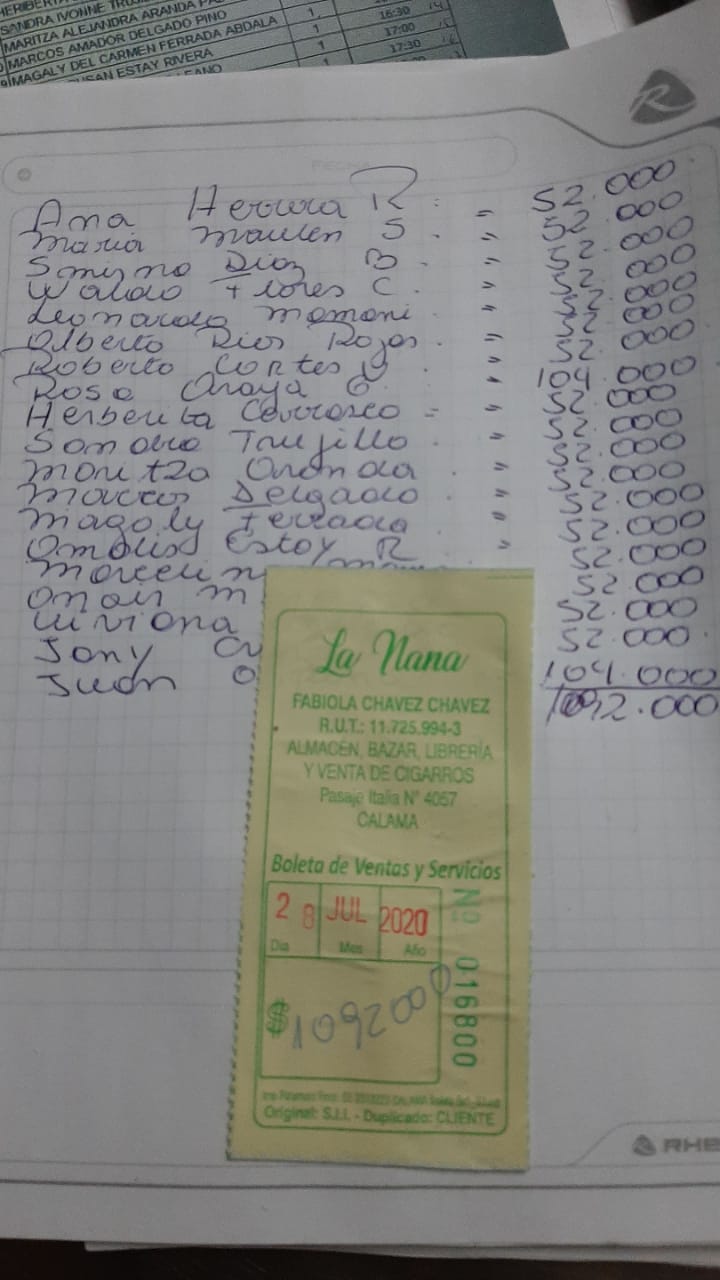 HERIBERTA
SANDRA IVONNE TRUJ 1
MARITZA ALEJANDRA ARANDA PA 1 16:30 14
MARCOS AMADOR DELGADO PINO 1 17:00 15
MAGALY DEL CARMEN FERRADA ABDALA 1 17:30 16
SAN ESTAY RIVERA 1
FECHA
Ana Herrera R : " 52.000
Maria Maulen S . " 52.000
Smirna Diaz B . " 52.000
Waldo Flores C . " 52.000
Leonardo Mamani . " 52.000
Alberto Rios Rojas . " 52.000
Roberto Cortes V . " 52.000
Rosa Araya O . " 104.000
Herberita Carrasco = " 52.000
Sandra Trujillo . " 52.000
Maritza Aranda . " 52.000
Marcos Delgado . " 52.000
Magaly Ferrada " 52.000
Estay R " 52.000
Marcelin 52.000
Omar M 52.000
Viviana 52.000
Jony 52.000
Juan O 104.000
1092.000
La Nana
FABIOLA CHAVEZ CHAVEZ
R.U.T.: 11.725.994-3
ALMACÉN, BAZAR, LIBRERÍA
Y VENTA DE CIGARROS
Pasaje Italia N° 4057
CALAMA
Boleta de Ventas y Servicios
28 JUL 2020
Día Mes Año
Nº 016800
$ 1092000
Original: S.I.I. - Duplicado: CLIENTE
RHE